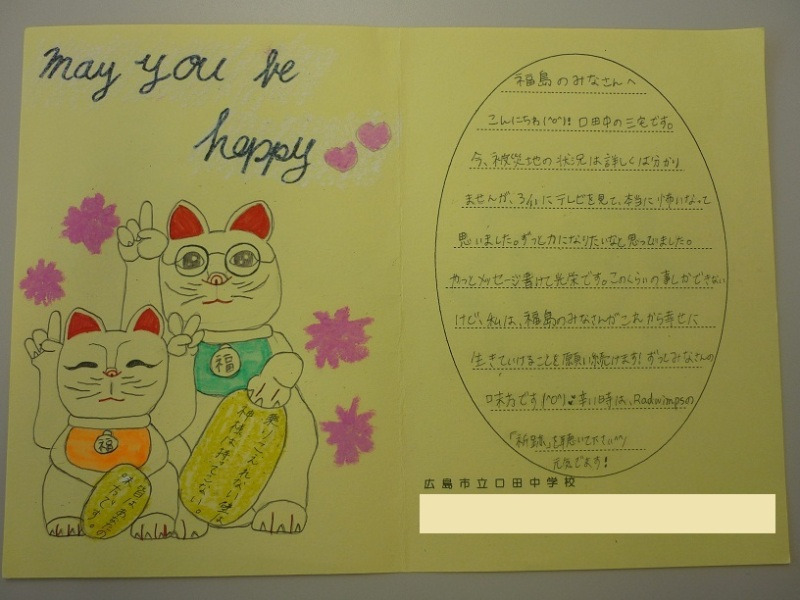 may you be
happy
福
福
乗りこえれない壁は
神様は持てこない。
皆はあなたの
味方です。
福島のみなさんへ
こんにちわ(^o^)! 口田中の三宅です。
今、被災地の状況は詳しくは分かり
ませんが、3/11にテレビを見て、本当に怖いなって
思いました。ずっと力になりたいなと思っていました。
やっとメッセージ書けて光栄です。このくらいの事しかできない
けど、私は、福島のみなさんがこれから幸せに
生きていけることを願い続けます!ずっとみなさんの
味方です(^o^)♪辛い時は、Radwimpsの
を聴いて
元気でます!
広島市立口田中学校